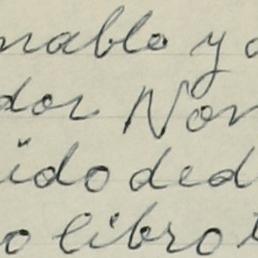 nablo y a
dor Nor
ido ded
o libro